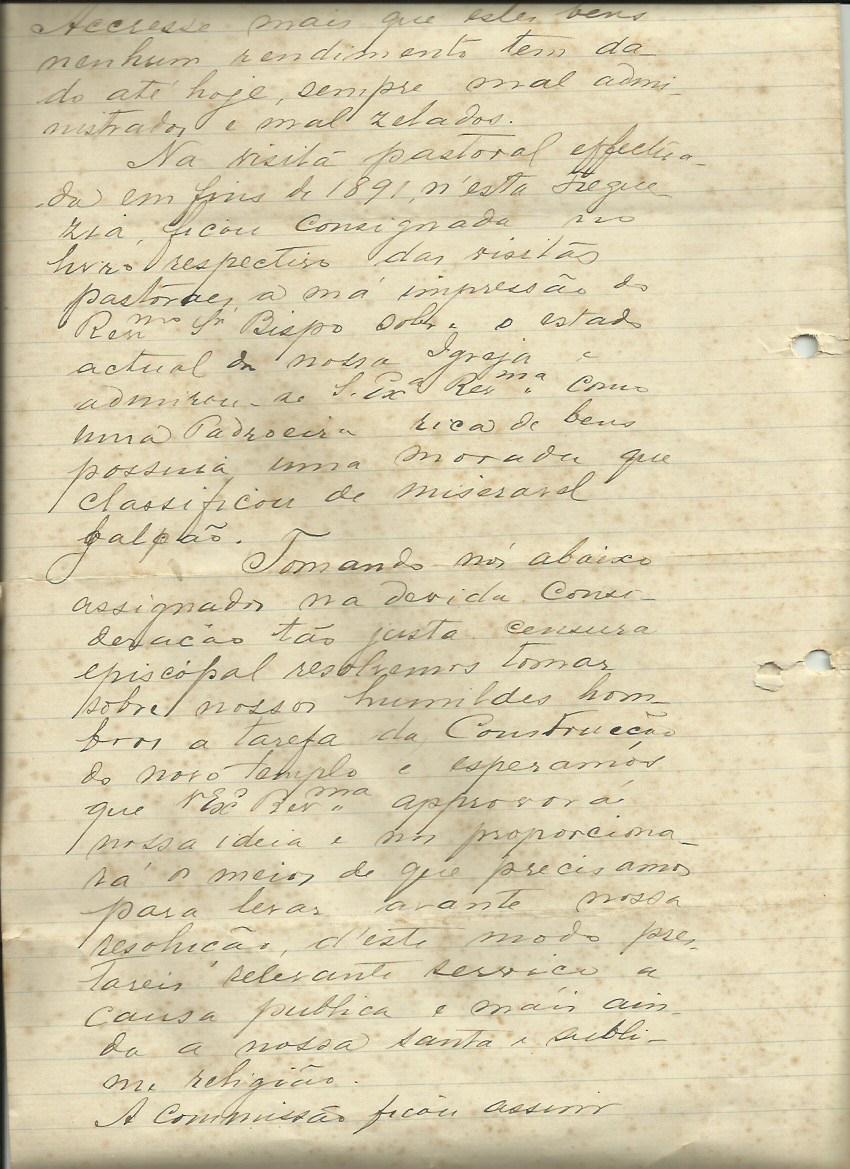 Accresse mais que estes bens
nenhum rendimento tem da
do até hoje, sempre mal admi-
nistrados e mal zelados.
Na visita pastoral effectua-
da em fins de 1891, n'esta Fregue
zia, ficou consignada no
livro respectivo das visitas
pastoraes a má impressão do
Revmo Sr Bispo sobre o estado
actual da nossa Igreja e
admirou-se S. Exa Revma como
uma Padroeira rica de bens
possuia uma morada que
classificou de miseravel
galpão.
Tomando nós abaixo
assignados na devida consi-
deração tão justa censura
episcopal resolvemos tomar
sobre nossos humildes hom-
bros a tarefa da Construcção
do novo templo e esperamos
que V Exa Revma approvará
nossa ideia e nos proporciona-
rá os meios de que precisamos
para levar avante nossa
resolução, d'este modo pres-
tareis relevante serviço a
causa publica e mais ain-
da a nossa santa e subli-
me religião.
A Commissão ficou assim